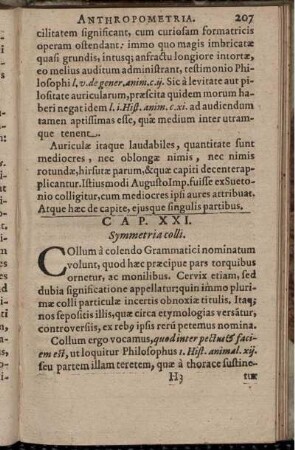 ANTHROPOMETRIA. 207
cilitatem significant, cum curiosam formatricis
operam ostendant: immo quo magis imbricatæ
quasi grundis, intusq; anfractu longiore intortæ,
eo melius auditum administrant, testimonio Phi-
losophi l. v. de gener. anim. c. ij. Sic à levitate aut pi-
lositate auricularum, præscita quidem morum ha-
beri negat idem l. i. Hist. anim. c. xi. ad audiendum
tamen aptissimas esse, quæ medium inter utram-
que tenent.
Auriculæ itaque laudabiles, quantitate sunt
mediocres, nec oblongæ nimis, nec nimis
rotundæ, hirsutæ parum, & quæ capiti decenter ap-
plicantur. Istiusmodi Augusto Imp. fuisse ex Sueto-
nio colligitur, cum mediocres ipsi aures attribuat.
Atque hæc de capite, ejusque singulis partibus.
CAP. XXI.
Symmetria colli.
COllum à colendo Grammatici nominatum
volunt, quod hæc præcipue pars torquibus
ornetur, ac monilibus. Cervix etiam, sed
dubia significatione appellatur: quin immo pluri-
mæ colli particulæ incertis obnoxiæ titulis. Itaq;
nos sepositis illis, quæ circa etymologias versātur,
controversiis, ex rebꝰ ipsis rerū petemus nomina.
Collum ergo vocamus, quod inter pectus & faci-
em est, ut loquitur Philosophus 1. Hist. animal. xij.
seu partem illam teretem, quæ à thorace sustine-
H3 tur